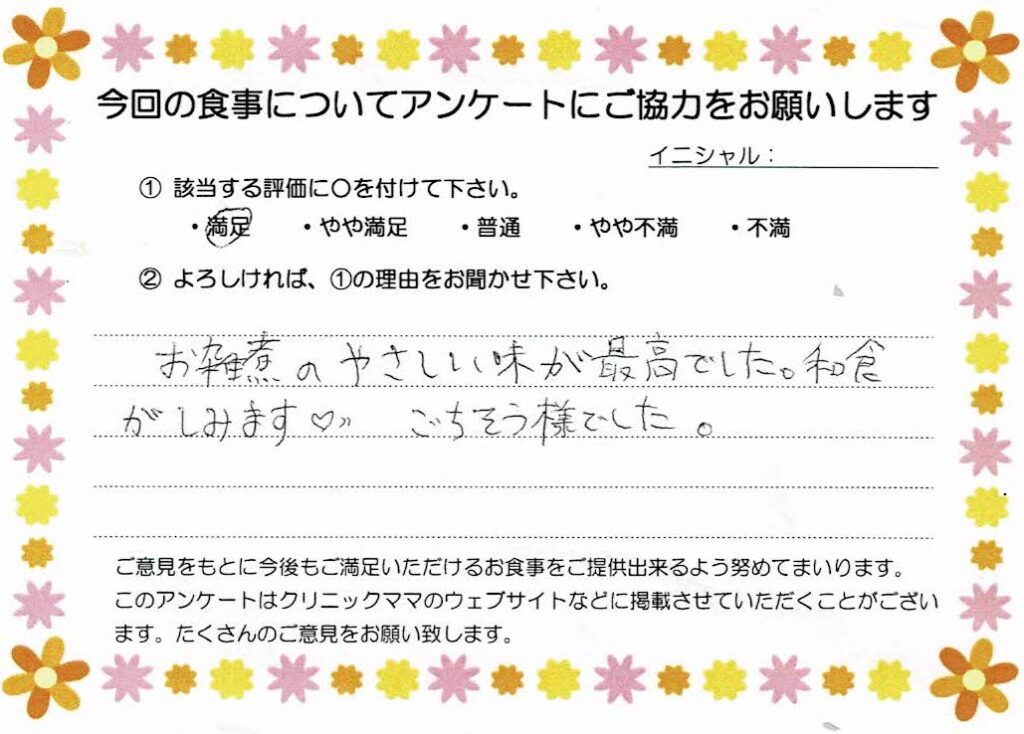 今回の食事についてアンケートにご協力をお願いします
イニシャル：
① 該当する評価に〇を付けて下さい。
・満足 ・やや満足 ・普通 ・やや不満 ・不満
② よろしければ、①の理由をお聞かせ下さい。
お雑煮のやさしい味が最高でした。和食
がしみます♡〃 ごちそう様でした。
ご意見をもとに今後もご満足いただけるお食事をご提供出来るよう努めてまいります。
このアンケートはクリニックママのウェブサイトなどに掲載させていただくことがござい
ます。たくさんのご意見をお願い致します。